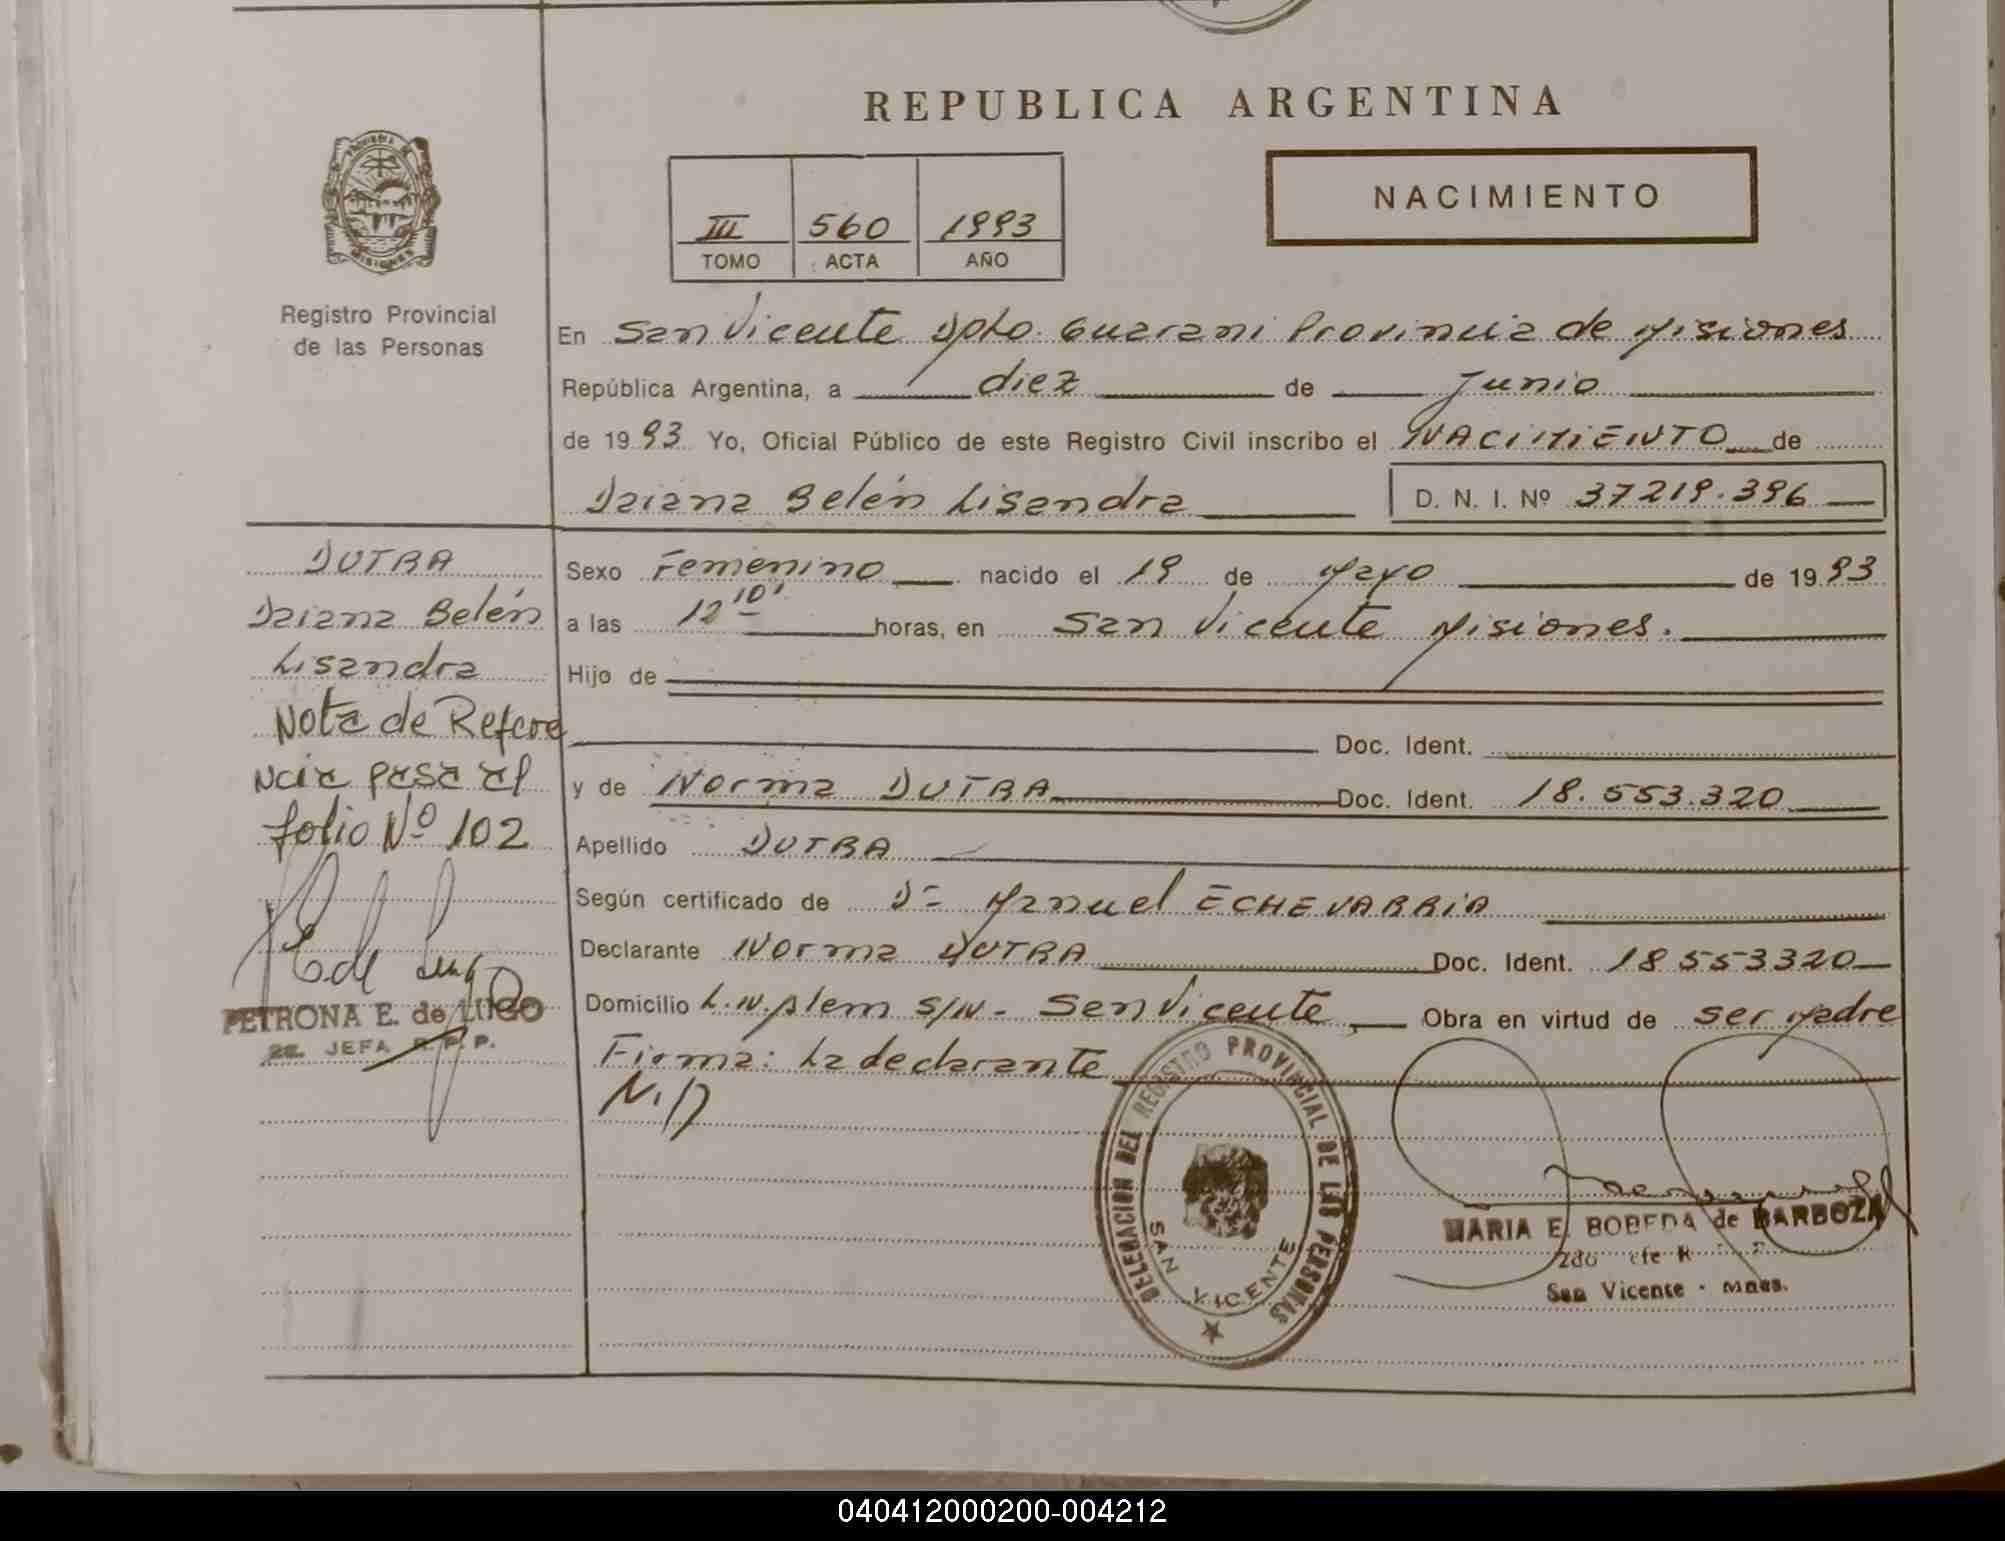 REPUBLICA ARGENTINA
NACIMIENTO
III 560 1993
TOMO ACTA AÑO
Registro Provincial
de las Personas
En San Vicente Dpto. Guarani Provincia de Misiones
República Argentina, a diez de Junio
de 1993 Yo, Oficial Público de este Registro Civil inscribo el NACIMIENTO de
Daiana Belén Lisandra D. N. I. Nº 37219.396
DUTRA
Daiana Belén
Lisandra
Nota de Refere
ncia pasa al
folio Nº 102
PETRONA E. de LUGO
2a. JEFA R. P. P.
Sexo Femenino nacido el 19 de Mayo de 1993
a las 12 10' horas, en San Vicente Misiones.
Hijo de
Doc. Ident.
y de Norma DUTRA Doc. Ident. 18.553.320
Apellido DUTRA
Según certificado de Dr Manuel ECHEVARRIA
Declarante Norma DUTRA Doc. Ident. 18553320
Domicilio L.N.Alem S/N- San Vicente Obra en virtud de ser Madre
Firma: La declarante
N.D
DELEGACION DEL REGISTRO PROVINCIAL DE LAS PERSONAS
SAN VICENTE
MARIA E. BOBEDA de BARBOZA
2do
San Vicente - Mnes.
040412000200-004212